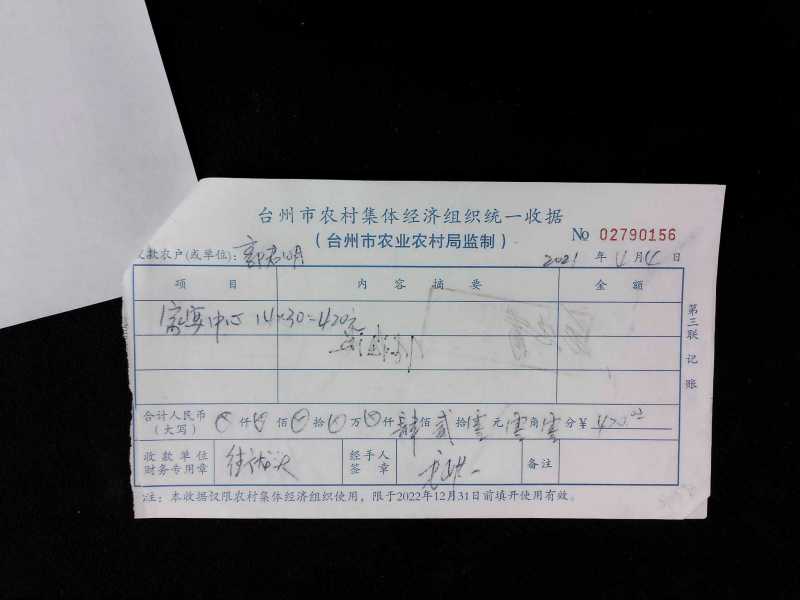 台州市农村集体经济组织统一收据
(台州市农业农村局监制)
№ 02790156
款农户(或单位):
2021 年 月 日
项 目 内 容 摘 要 金 额
宴中心 14×30=420元
合计人民币(大写) 仟 佰 拾 万 仟 肆 佰 贰 拾 零 元 零 角 零 分 ¥ 420.00
收款单位财务专用章 经手人签章 备注
注:本收据仅限农村集体经济组织使用,限于2022年12月31日前填开使用有效。
第三联 记账